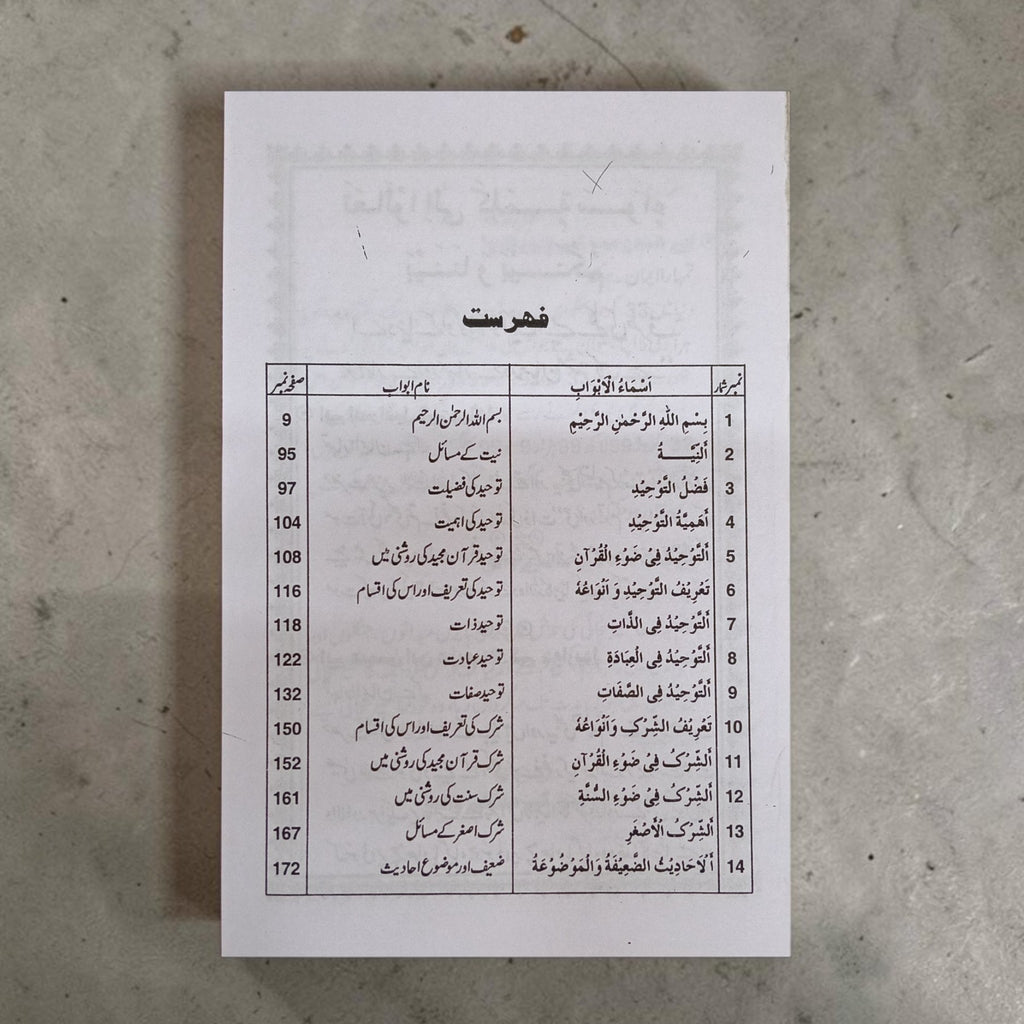 فہرست
نمبر شمار اَسْمَاءُ الْاَبْوَابِ نام ابواب صفحہ نمبر
1 بِسْمِ اللّٰهِ الرَّحْمٰنِ الرَّحِيْمِ بسم اللہ الرحمٰن الرحیم 9
2 أَلنِّيَّـــــةُ نیت کے مسائل 95
3 فَضْلُ التَّوْحِيْدِ توحید کی فضیلت 97
4 أَهَمِيَّةُ التَّوْحِيْدِ توحید کی اہمیت 104
5 أَلتَّوْحِيْدُ فِىْ ضَوْءِ الْقُرْآنِ توحید قرآن مجید کی روشنی میں 108
6 تَعْرِيْفُ التَّوْحِيْدِ وَ اَنْوَاعُهٗ توحید کی تعریف اور اس کی اقسام 116
7 أَلتَّوْحِيْدُ فِى الذَّاتِ توحید ذات 118
8 أَلتَّوْحِيْدُ فِى الْعِبَادَةِ توحید عبادت 122
9 أَلتَّوْحِيْدُ فِى الصِّفَاتِ توحید صفات 132
10 تَعْرِيْفُ الشِّرْكِ وَاَنْوَاعُهٗ شرک کی تعریف اور اس کی اقسام 150
11 أَلشِّرْكُ فِىْ ضَوْءِ الْقُرْآنِ شرک قرآن مجید کی روشنی میں 152
12 أَلشِّرْكُ فِىْ ضَوْءِ السُّنَّةِ شرک سنت کی روشنی میں 161
13 أَلشِّرْكُ الْأَصْغَرِ شرک اصغر کے مسائل 167
14 أَلْاَحَادِيْثُ الضَّعِيْفَةُ وَالْمَوْضُوْعَةُ ضعیف اور موضوع احادیث 172